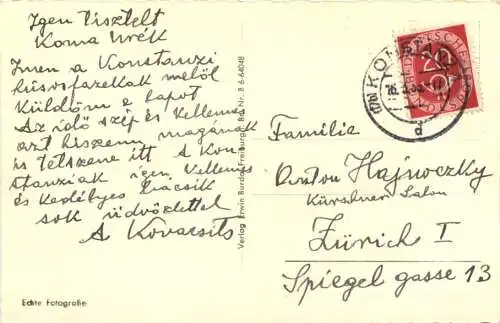 Igen tisztelt
Koma Urék
Imen a Konstanzi
húsvofazekak melöl
Küldöm e lapot
Az idő szép és Kellemes
azt hiszem magának
is tetszene itt A Kon
stanziak igen Kellemes
és Kedélyes
sok üdvözlettel
A Kovacsits
Echte Fotografie
Verlag Erwin Burda, Freiburg i. Brg. Nr. B 6-64048
KONSTANZ
DEUTSCHE
20
d
Familia
Anton Hajnoczky
Kürschner Salon
Zürich I
Spiegel gasse 13